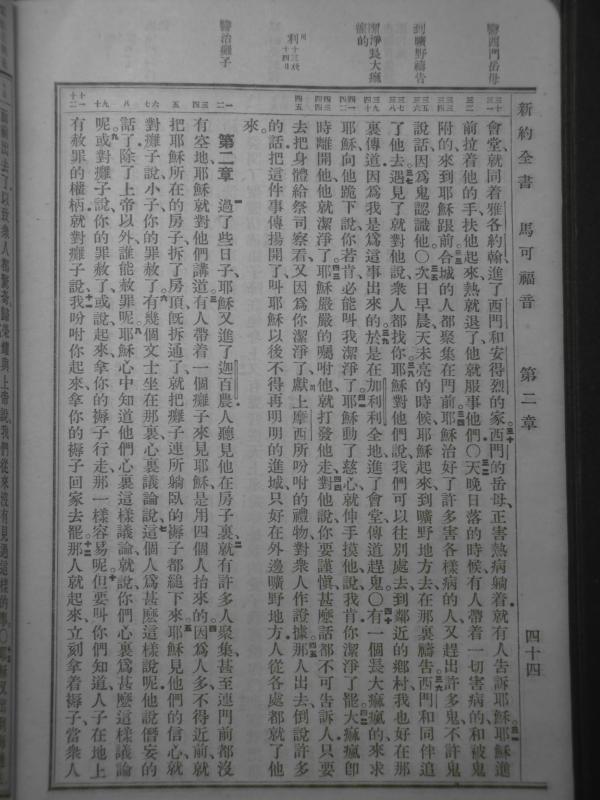 新約全書　馬可福音　第二章　四十四
醫西門岳母
到曠野禱告
潔淨長大痲瘋的
醫治癱子
會堂就同着雅各約翰進了西門和安得烈的家西門的岳母正害熱病躺着就有人告訴耶穌耶穌進
前拉着他的手扶他起來熱就退了他就服事他們〇天晚日落的時候有人帶着一切害病的和被鬼
附的來到耶穌跟前合城的人都聚集在門前耶穌治好了許多害各樣病的人又趕出許多鬼不許鬼
說話因爲鬼認識他〇次日早晨天未亮的時候耶穌起來到曠野地方去在那裏禱告西門和同伴追
了他去遇見了就對他說衆人都找你耶穌對他們說我們可以往別處去到鄰近的鄉村我也好在那
裏傳道因爲我是爲這事出來的於是在加利利全地進了會堂傳道趕鬼〇有一個長大痲瘋的來求
耶穌向他跪下說你若肯必能叫我潔淨了耶穌動了慈心就伸手摸他說我肯你潔淨了罷大痲瘋卽
時離開他他就潔淨了耶穌嚴嚴的囑咐他就打發他走對他說你要謹愼甚麽話都不可告訴人只要
去把身體給祭司察看又因爲你潔淨了獻上摩西所吩咐的禮物對衆人作證據那人出去倒說許多
的話把這件事傳揚開了叫耶穌以後不得再明明的進城只好在外邊曠野地方人從各處都就了他
來
第二章　過了些日子耶穌又進了迦百農人聽見他在房子裏就有許多人聚集甚至連門前都沒
有空地耶穌就對他們講道有人帶着一個癱子來見耶穌是用四個人抬來的因爲人多不得近前就
把耶穌所在的房子拆了房頂旣拆通了就把癱子連所躺臥的褥子都縋下來耶穌見他們的信心就
對癱子說小子你的罪赦了有幾個文士坐在那裏心裏議論說這個人爲甚麽這樣說呢他說僭妄的
話了除了上帝以外誰能赦罪呢耶穌心中知道他們心裏這樣議論就說你們心裏爲甚麽這樣議論
呢或對癱子說你的罪赦了或說起來拿你的褥子行走那一樣容易呢但要叫你們知道人子在地上
有赦罪的權柄就對癱子說我吩咐你起來拿你的褥子回家去罷那人就起來立刻拿着褥子當衆人